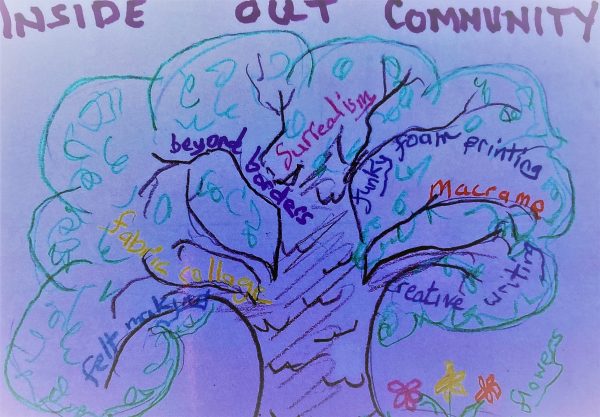 INSIDE OUT COMMUNITY
beyond borders
Surrealism
funky foam printing
Macrame
fabric collage
creative writing
felt making
flowers